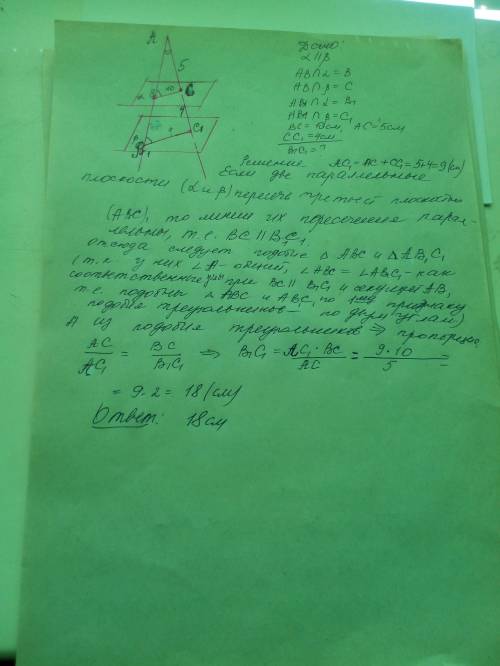 A
5
10
C
4
C₁
B₁
?
Дано:
α || β
AB ∩ α = B
AB ∩ β = C
AB₁ ∩ α = B₁
AB₁ ∩ β = C₁
BC = 10см, AC = 5см
CC₁ = 4см
B₁C₁ = ?
Решение AC₁ = AC + CC₁ = 5+4 = 9 (см)
Если две параллельные
плоскости (α и β) пересеч третьей плоскостью
(ABC), то линии их пересечения парал-
лельны, т.е. BC || B₁C₁
отсюда следует подобие Δ ABC и Δ AB₁C₁
(т.к у них ∠A - общий, ∠ABC = ∠AB₁C₁ - как
соответственные при BC || B₁C₁ и секущей AB,
т.е. подобны Δ ABC и AB₁C₁ по признаку
подобия треугольников - по двум углам)
А из подобия треугольников ⇒ пропорция
AC/AC₁ = BC/B₁C₁ ⇒ B₁C₁ = AC₁·BC/AC = 9·10/5 =
= 9·2 = 18 (см)
Ответ: 18см